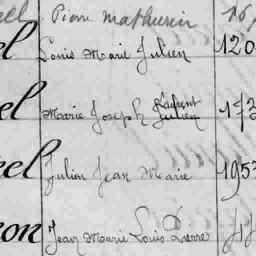 ell Pierre Mathurin 16
el Louis Marie Julien 120
el Marie Joseph Laurent Julien 173
eel Julien Jean Marie 1953
eon Jean Marie Louis Pierre